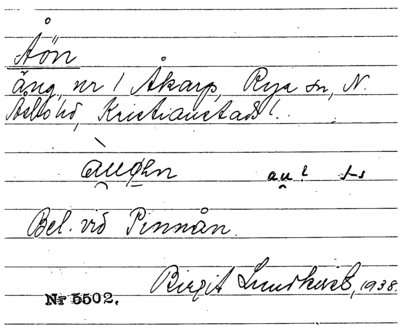 Åön
äng, nr 1 Åkarp, Rya sn, N.
Åsbo hd, Kristianstads l.
Bel. vid Pinnån.
Birgit Lundkvist, 1938.
Nr 5502.